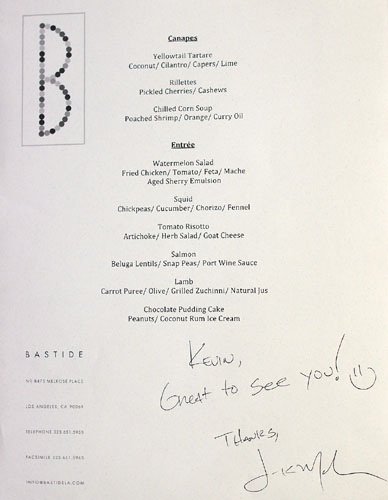 B
Canapes
Yellowtail Tartare
Coconut/ Cilantro/ Capers/ Lime
Rillettes
Pickled Cherries/ Cashews
Chilled Corn Soup
Poached Shrimp/ Orange/ Curry Oil
Entrée
Watermelon Salad
Fried Chicken/ Tomato/ Feta/ Mache
Aged Sherry Emulsion
Squid
Chickpeas/ Cucumber/ Chorizo/ Fennel
Tomato Risotto
Artichoke/ Herb Salad/ Goat Cheese
Salmon
Beluga Lentils/ Snap Peas/ Port Wine Sauce
Lamb
Carrot Puree/ Olive/ Grilled Zuchinni/ Natural Jus
Chocolate Pudding Cake
Peanuts/ Coconut Rum Ice Cream
BASTIDE
MELROSE PLACE
LOS ANGELES, CA 90069
TELEPHONE 323.651.5950
FACSIMILE 323.651.5960
INFO@BASTIDELA.COM
Kevin,
Great to see you!
Thanks,